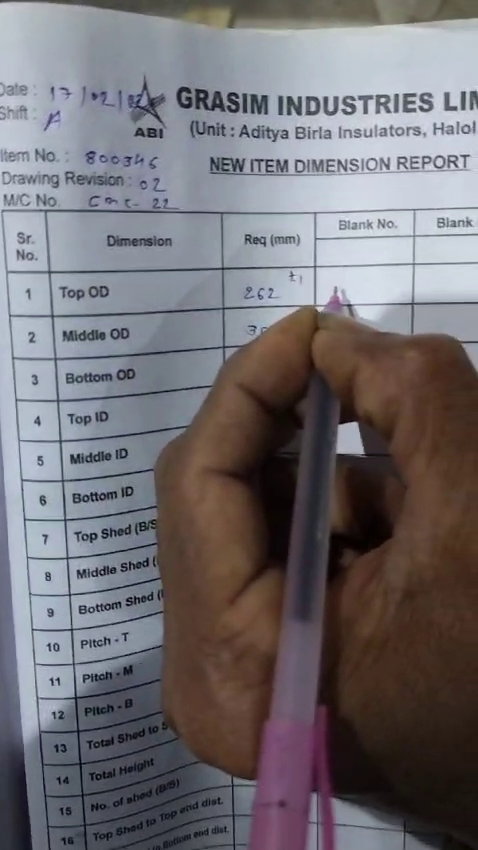 Date : 17/02/
Shift : A
ABI
GRASIM INDUSTRIES LIM
(Unit : Aditya Birla Insulators, Halol
Item No. : 800346
NEW ITEM DIMENSION REPORT
Drawing Revision : 02
M/C No. CNC - 22
Sr. No. Dimension Req (mm) Blank No. Blank
1 Top OD 262 ±1
2 Middle OD
3 Bottom OD
4 Top ID
5 Middle ID
6 Bottom ID
7 Top Shed (B/S
8 Middle Shed (
9 Bottom Shed (
10 Pitch - T
11 Pitch - M
12 Pitch - B
13 Total Shed to S
14 Total Height
15 No. of shed (B/S)
16 Top Shed to Top end dist.
to Bottom end dist.